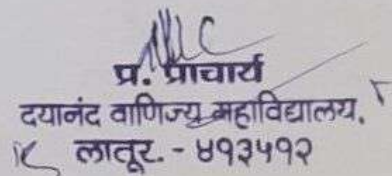 प्र. प्राचार्य
दयानंद वाणिज्य महाविद्यालय,
लातूर. - ४१३५१२